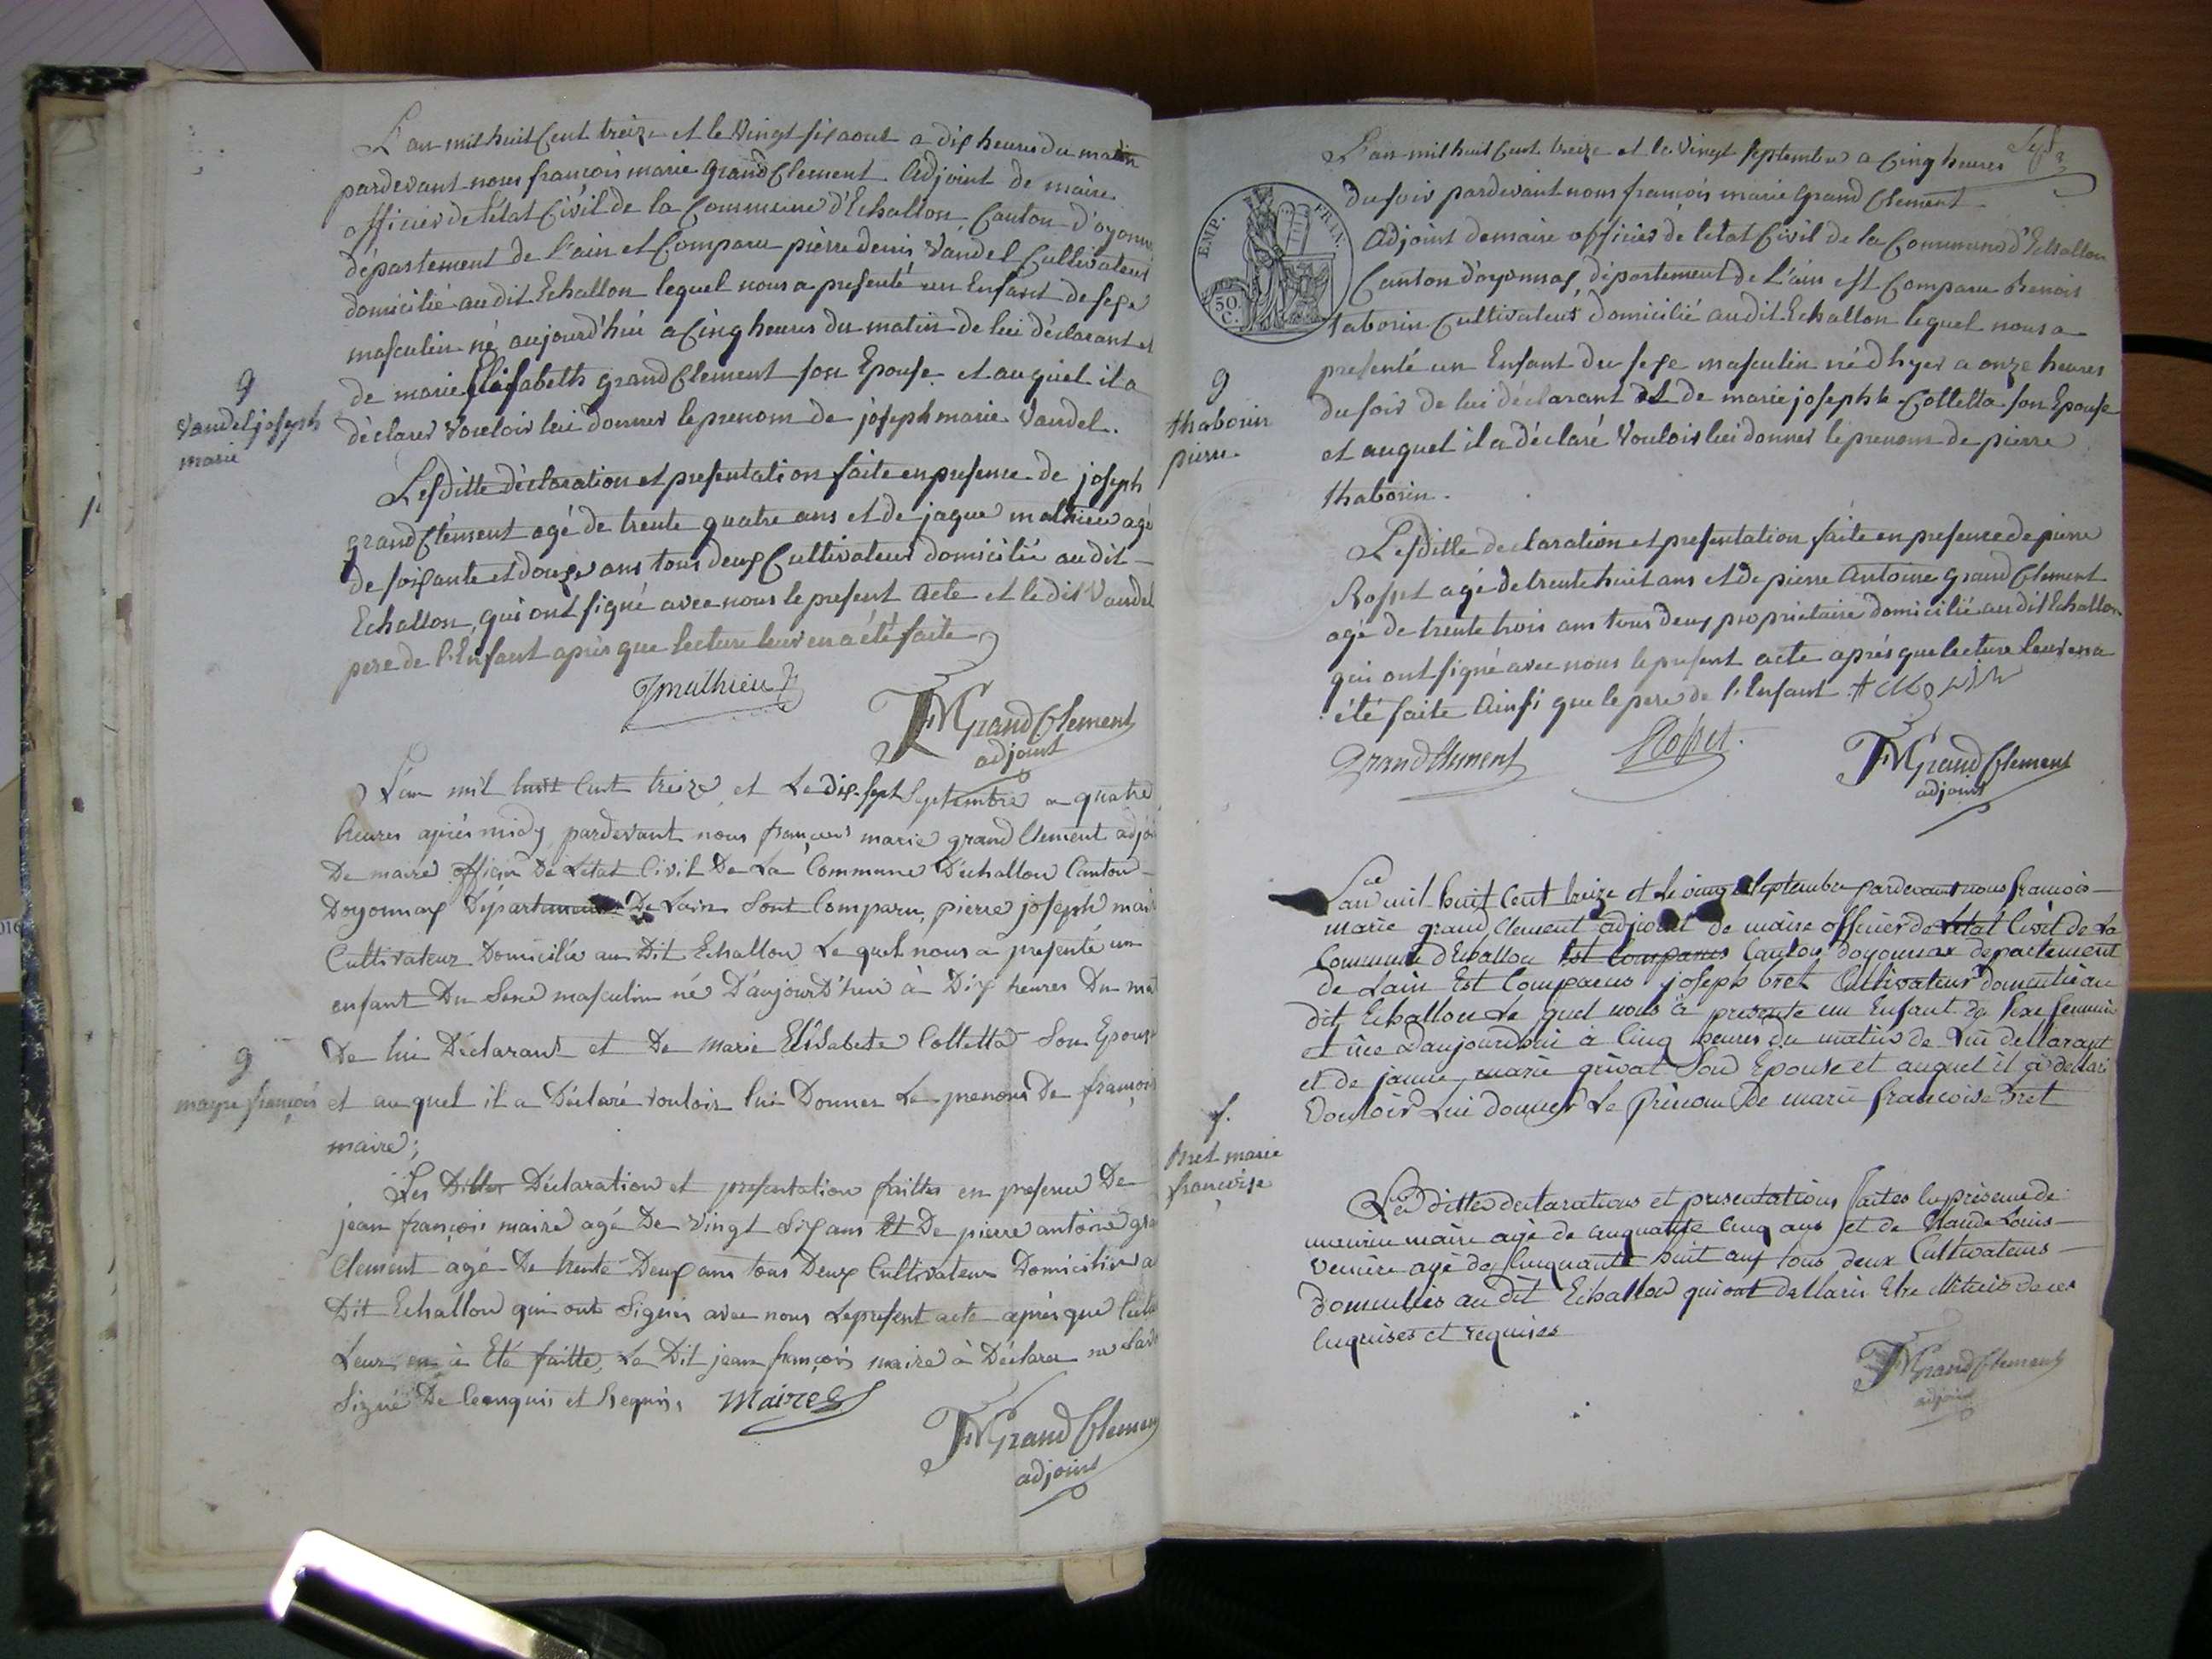 L'an mil huit Cent treize et le Vingt six aout a dix heures du matin
pardevant nous françois marie grand Clement Adjoint de maire
officier de l'etat Civil de la Commune d'Echallon, Canton d'oyonna
département de l'ain est Comparu pierre denis Vandel Cultivateur
domicilié audit Echallon lequel nous a presenté un Enfant de sexe
masculin né aujourd'hui a Cinq heures du matin de lui déclarant et
de marie Elisabeth grand Clement son Epouse et auquel il a
déclarer Vouloir lui donner le prenom de joseph marie Vandel.
g
Vandel joseph
marie
Lesditte déclaration et presentation faite en presence de joseph
grand Clément agé de trente quatre ans et de jaque mathieu agé
de soixante et douze ans tous deux Cultivateur domicilié audit
Echallon, qui ont signé avec nous le present Acte et le dit Vandel
pere de l'Enfant après que lecture leur en a été faite
J mathieu
FM Grand Clement
adjoint
L'an mil huit Cent treize et Le dix-sept Septembre a quatre
heures après midy, pardevant nous françois marie grand Clement adjoi
De maire officier De Letat Civil De La Commune D'echallon Canton
Doyonnax Département De Lain Sont Comparu, pierre joseph mair
Cultivateur Domicilié au Dit Echallon Le quel nous a presenté un
enfant Du Sexe masculin né D'aujourD'hui à Dix heures Du mat
De lui Déclarant et De marie Elisabete Colletta Son Epouse
g
mayre françois
et au quel il a Déclaré vouloir lui Donner Le prenom De françois
maire;
Les Dittes Déclaration et presentation faittes en presence De
jean françois maire agé De vingt Six ans Et De pierre antoine gra
Clement agé De trente Deux ans tous Deux Cultivateur Domicilier a
Dit Echallon qui ont Signés avec nous Le present acte après que Lectu
Leur en à Eté faitte, Le Dit jean françois maire à Déclarer ne Savo
Signé De Ce enquis et Requis, Maire
FM Grand Clemen
adjoint
Sept
L'an mil huit Cent treize et le Vingt septembre a Cinq heures
du soir pardevant nous françois marie grand Clement
Adjoint de maire officier de letat Civil de la Commune d'Echallon
EMP. FRAN.
50
C.
Canton d'oyonnax, département de L'ain est Comparu benois
taborin Cultivateur domicilié audit Echallon lequel nous a
presenté un Enfant du sexe masculin né d'hyer a onze heures
du soir de lui déclarant et de marie josephte Colletta son Epouse
et auquel il a déclaré Vouloir lui donner le prenom de pierre
thaborin.
g
thaborin
pierre
Lesditte declaration et presentation faite en presence de pierre
Rosset agé de trente huit ans et de pierre Antoine grand Clement
agé de trente trois ans tous deux proprietaire domicilié audit Echallon
qui ont signé avec nous le present acte après que lecture leur en a
été faite Ainsi que le pere de l'Enfant
Grand Clement Rosset
FM Grand Clement
adjoint
L'an mil huit Cent treize et le Septembre pardevant nous francois
marie grand Clement adjoint de maire officier de Letat Civil de La
Commune dEchallon Est Comparus Canton doyonnax departement
de Lain Est Comparus joseph bret Cultivateur domicilié au
dit Echallon Le quel nous a presenté un Enfant du Sexe feminin
et née daujourdhui à Cinq heures du matin de Lui declarant
et de janne marie grivat Son Epouse et auquel il à declaré
Vouloir Lui donner Le Prénom de marie francoise Bret
f.
bret marie
françoise
Les dittes declarations et presentations faites en présence de
maire agé de cinquante cinq ans et de Claude Louis
Verriere agé de Cinquante huit ans tous deux Cultivateurs
domiciliés au dit Echallon qui ont declaré Etre de ce
Enquises et requises
FM Grand Clement
adjoint